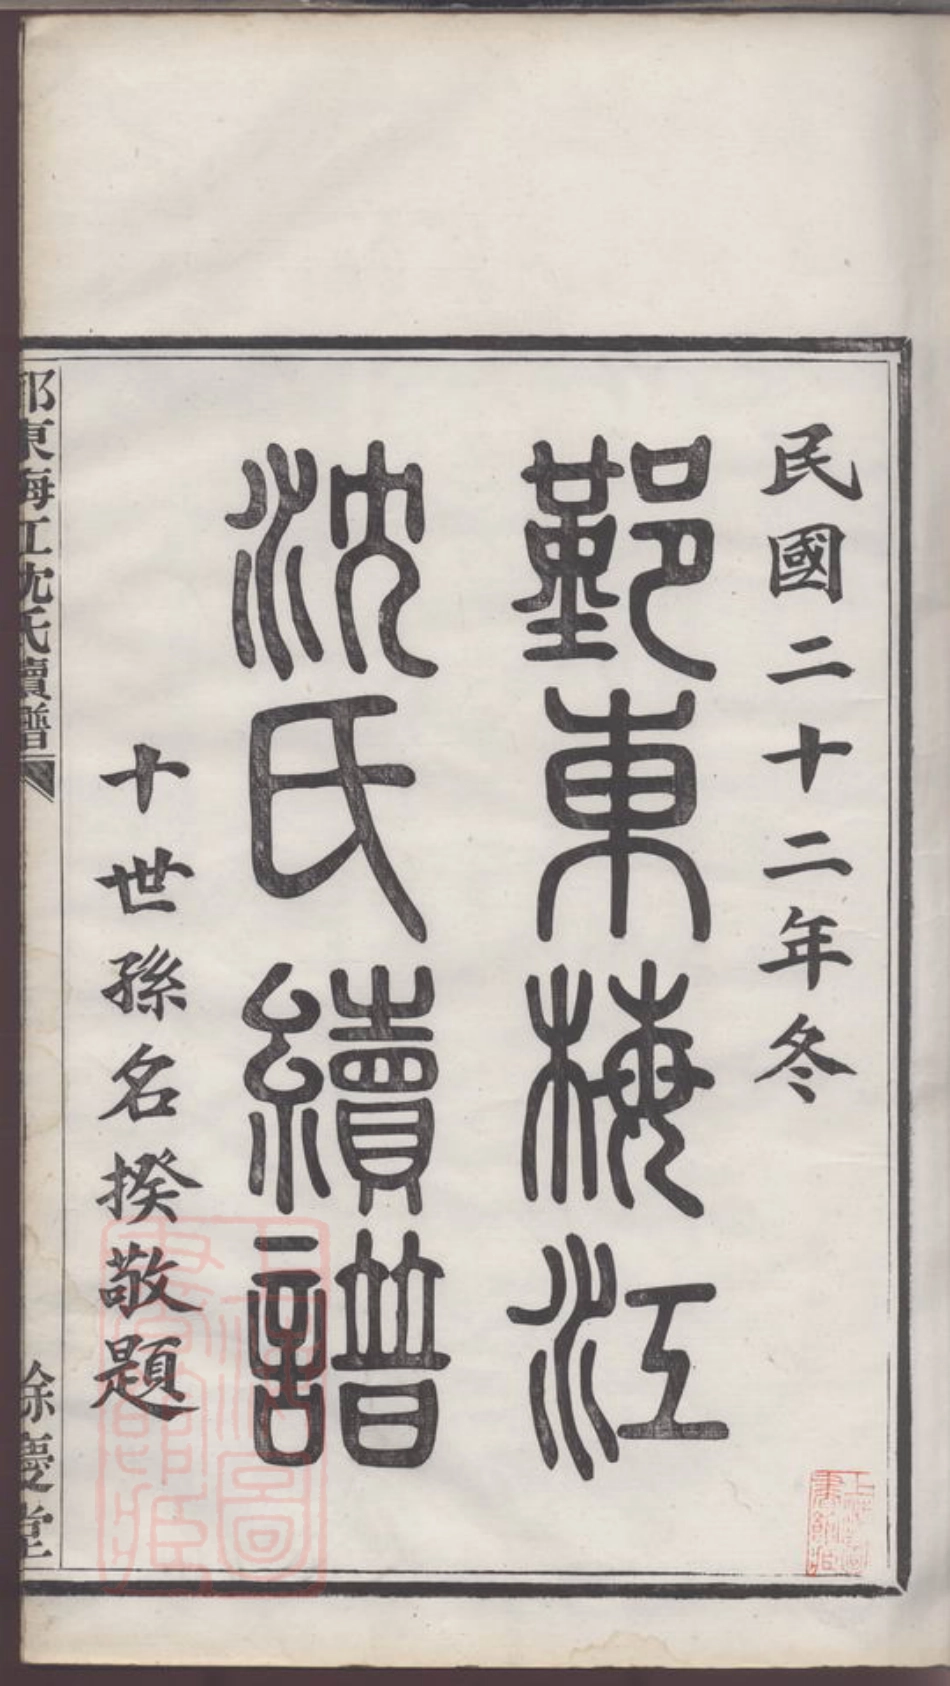 民國二十二年冬
鄞東梅江
沈氏續譜
十世孫名揆敬題
鄞東梅江沈氏續譜
餘慶堂
上海圖書館藏
上海圖書館藏